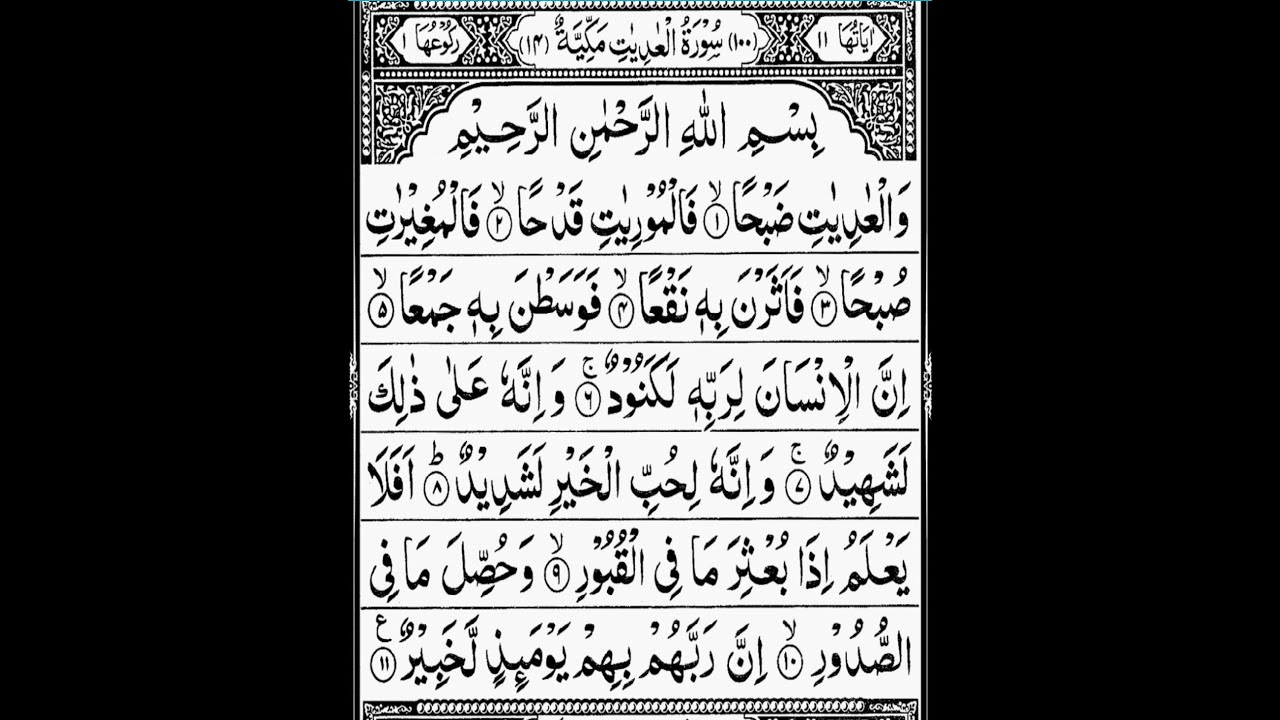 اٰيَاتُهَا ١١ (١٠٠) سُوْرَةُ الْعٰدِيٰتِ مَكِّيَّةٌ (١٤) رُكُوْعُهَا ١
بِسْمِ اللّٰهِ الرَّحْمٰنِ الرَّحِيْمِ
وَالْعٰدِيٰتِ ضَبْحًا ۙ﴿١﴾ فَالْمُوْرِيٰتِ قَدْحًا ۙ﴿٢﴾ فَالْمُغِيْرٰتِ
صُبْحًا ۙ﴿٣﴾ فَاَثَرْنَ بِهٖ نَقْعًا ۙ﴿۴﴾ فَوَسَطْنَ بِهٖ جَمْعًا ۙ﴿۵﴾
اِنَّ الْاِنْسَانَ لِرَبِّهٖ لَكَنُوْدٌ ۚ﴿۶﴾ وَاِنَّهٗ عَلٰى ذٰلِكَ
لَشَهِيْدٌ ۚ﴿٧﴾ وَاِنَّهٗ لِحُبِّ الْخَيْرِ لَشَدِيْدٌ ؕ﴿٨﴾ اَفَلَا
يَعْلَمُ اِذَا بُعْثِرَ مَا فِى الْقُبُوْرِ ۙ﴿٩﴾ وَحُصِّلَ مَا فِى
الصُّدُوْرِ ۙ﴿١٠﴾ اِنَّ رَبَّهُمْ بِهِمْ يَوْمَئِذٍ لَّخَبِيْرٌ ﴿١١﴾ ع